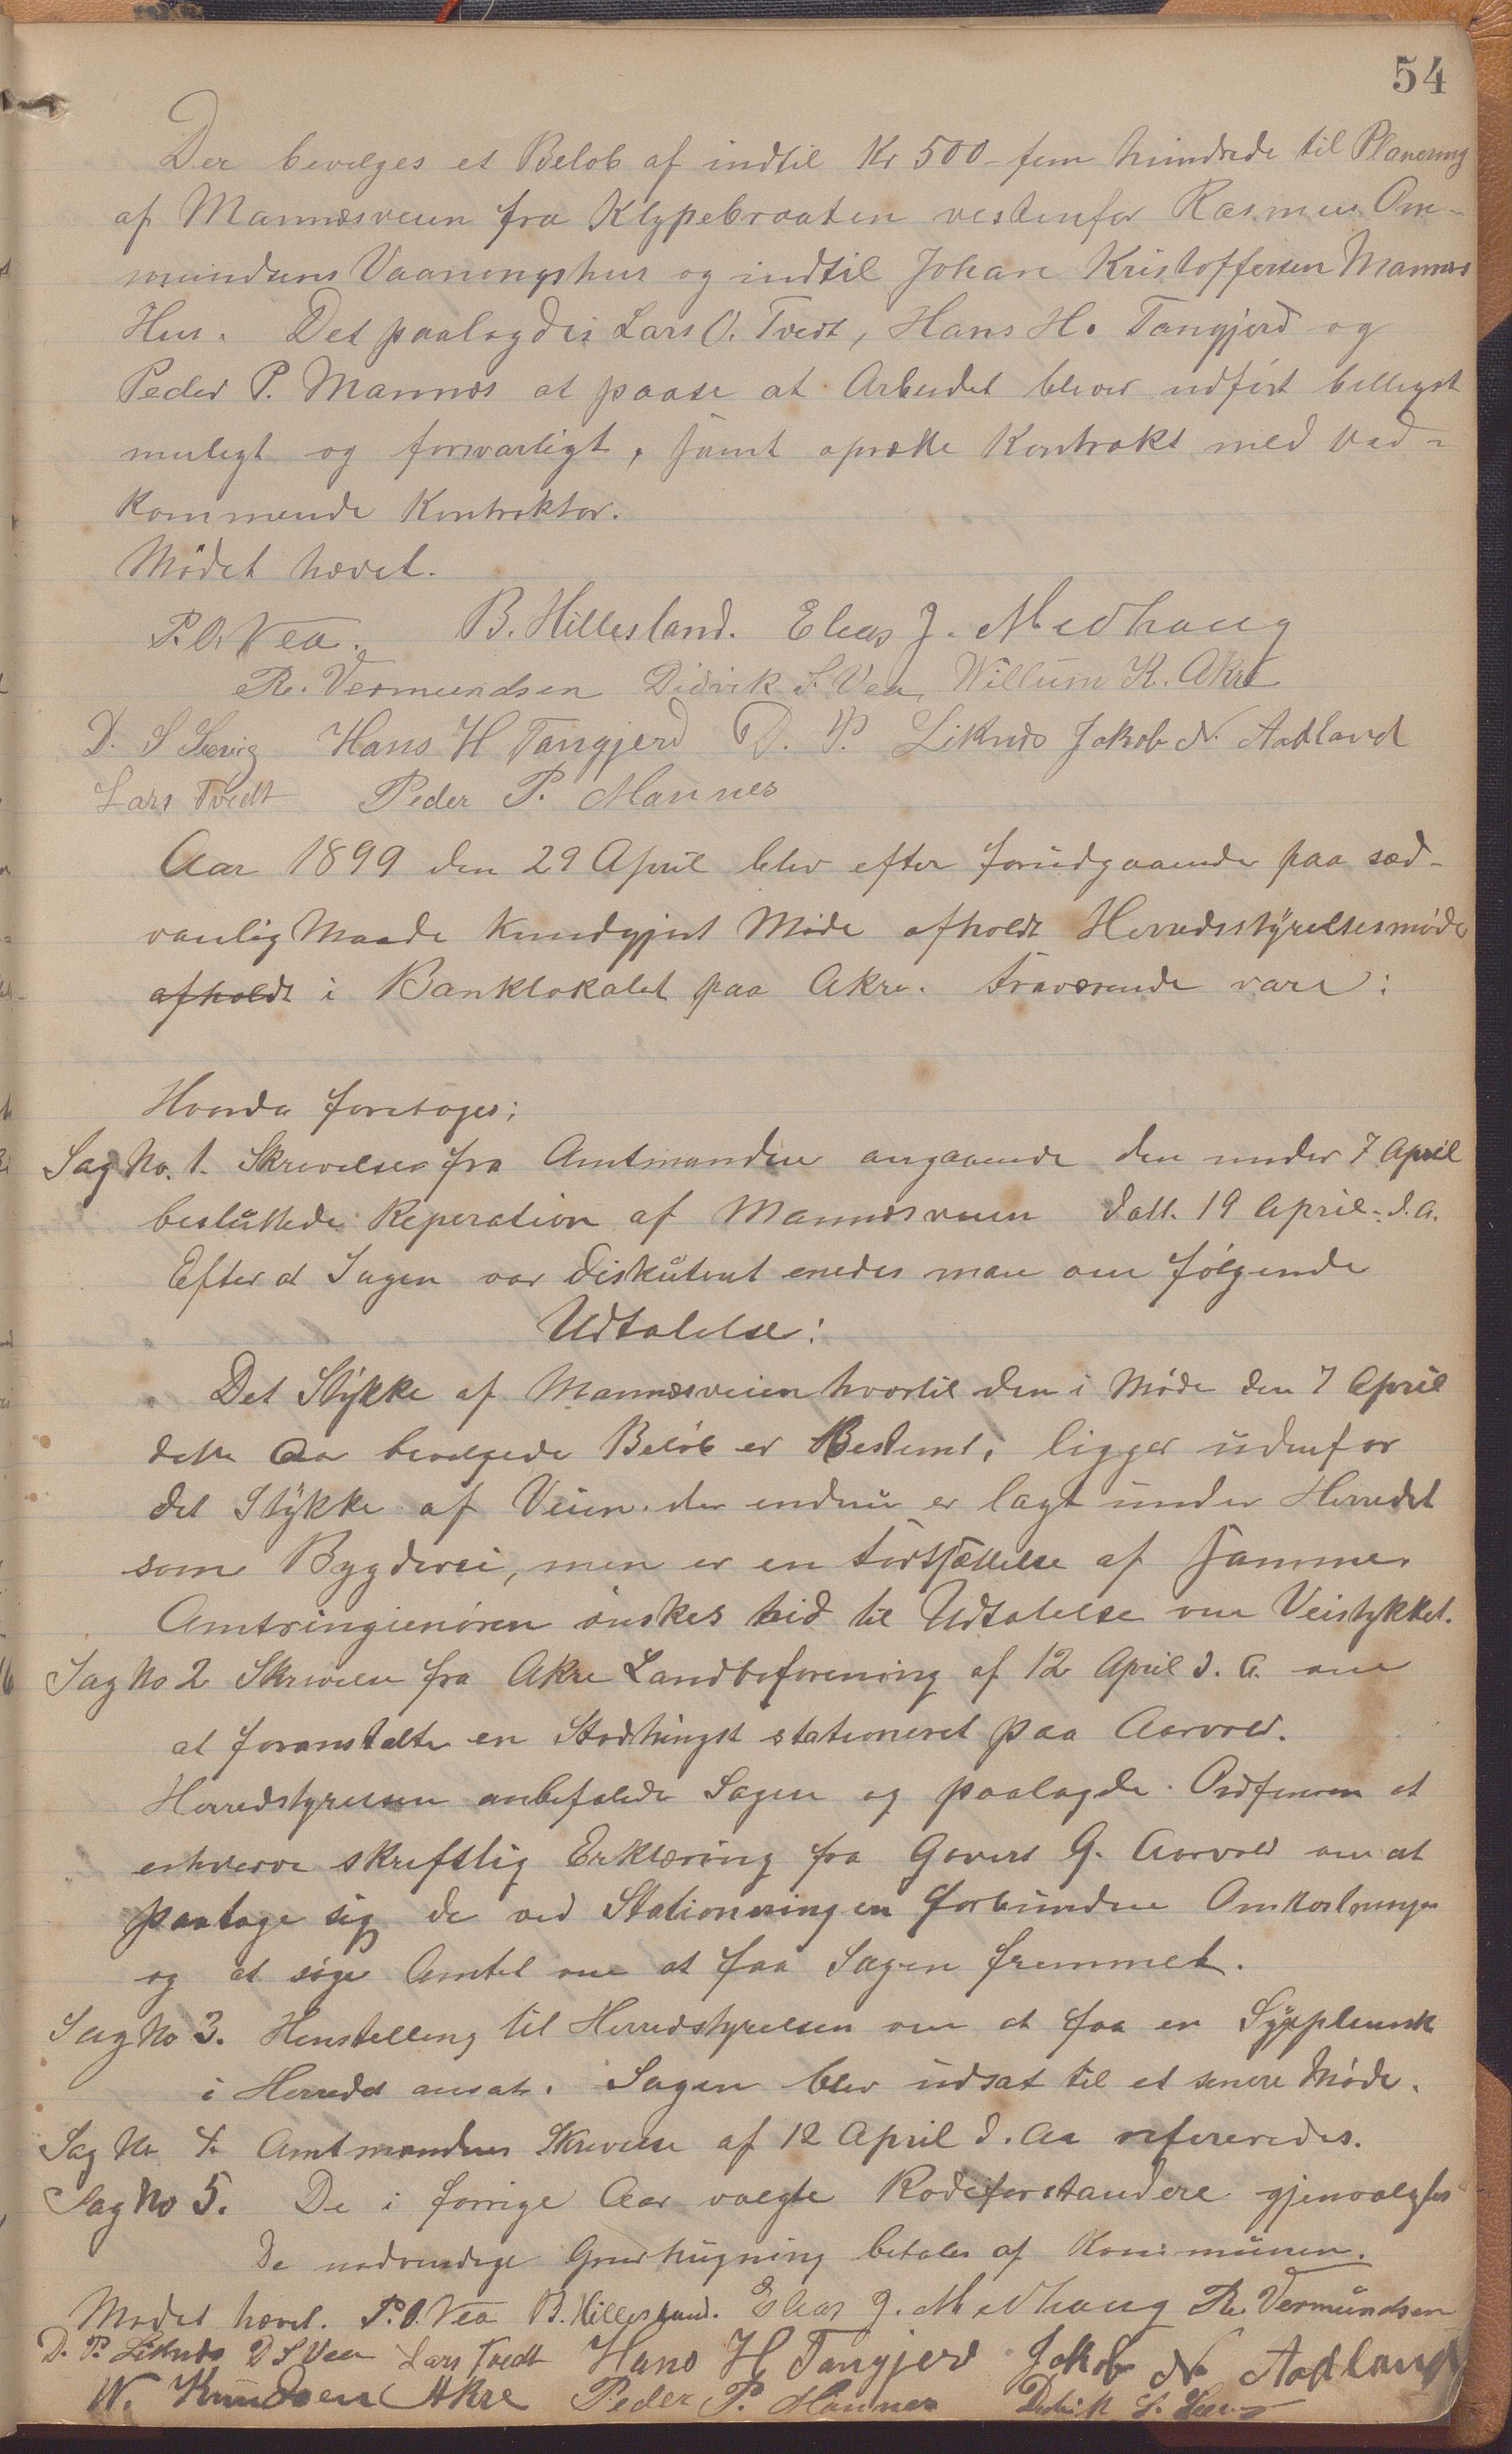 54
Der bevilges et Beløb af indtil Kr 500 - fem hundrede til Planering
af Mannæsveien fra Klypebraaten vestenfor Rasmus Om-
mundsens Vaaningshus og indtil Johan Kristoffersen Mannæs
Hus. Det paalagdes Lars O. Tvedt, Hans H. Tangjerd og
Peder P. Mannæs at paase at Arbeidet bliver udført billigst
muligt og forsvarligt, samt oprette Kontrakt med ved-
kommende Kontraktør.
Mødet hævet.
P.O. Vea. B. Hillesland. Elias J. Medhaug
R. Vermundsen Didrik S. Vea, Willum K. Akre
D. S Sævig Hans H Tangjerd D. P. Liknæs Jakob N. Aadland
Lars Tvedt Peder P. Mannes
Aar 1899 den 29 April blev efter forudgaaende paa sæd-
vanlig Maade kundgjort Møde afholdt Herredsstyrelsesmøde
afholdt i Banklokalet paa Akre. Fraværende vare:
Hvorda foretoges:
Sag No. 1. Skrivelse fra Amtmanden angaaende den under 7 April
besluttede Reperation af Mannæsveien datt. 19 April d.A.
Efter at Sagen var diskuteret enedes man om følgende
Udtalelse:
Det Stykke af Mannæsveien hvortil den i Møde den 7 April
dette Aar bevilgede Beløb er Bestemt, ligger udenfor
det Stykke af Veien der endnu er lagt under Herredet
som Bygdevei, men er en Fortsættelse af samme.
Amtsingieniøren ønskes hid til Udtalelse om Veistykket.
Sag No 2 Skrivelse fra Akre Landboforening af 12 April d. A. om
at foranstalte en Stodhingst stationeret paa Aarvold.
Herredstyrelsen anbefalede Sagen og paalagde Ordføreren at
erhverve skriftslig Erklæring fra Govert G. Aarvold om at
paatage sig de ved Stationeringen forbundne Omkostninger
og at søge Amtet om at faa Sagen fremmet.
Sag No 3. Henstilling til Herredstyrelsen om at faa en Sypleierske
i Herredet ansat. Sagen blev udsat til et senere Møde.
Sag No 4. Amtmandens Skrivelse af 12 April d. Aa refereredes.
Sag No 5. De i forrige Aar valgte Rodeforstandere gjenvalgtes
De nødvendige Grushugning betales af Kommunen.
Mødet hævet. P.O. Vea B. Hillesland. Elias J. Medhaug R. Vermundsen
D. P. Liknæs D S Vea Lars Tvedt Hans H Tangjerd Jakob N Aadland
W. Knudsen Akre Peder P. Mannes Didrik S. Sævig